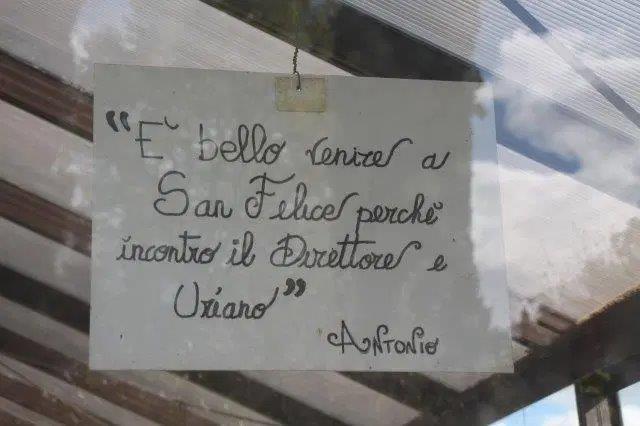 "E' bello venire a
San Felice perchè
incontro il Direttore e
Uriano"
Antonio